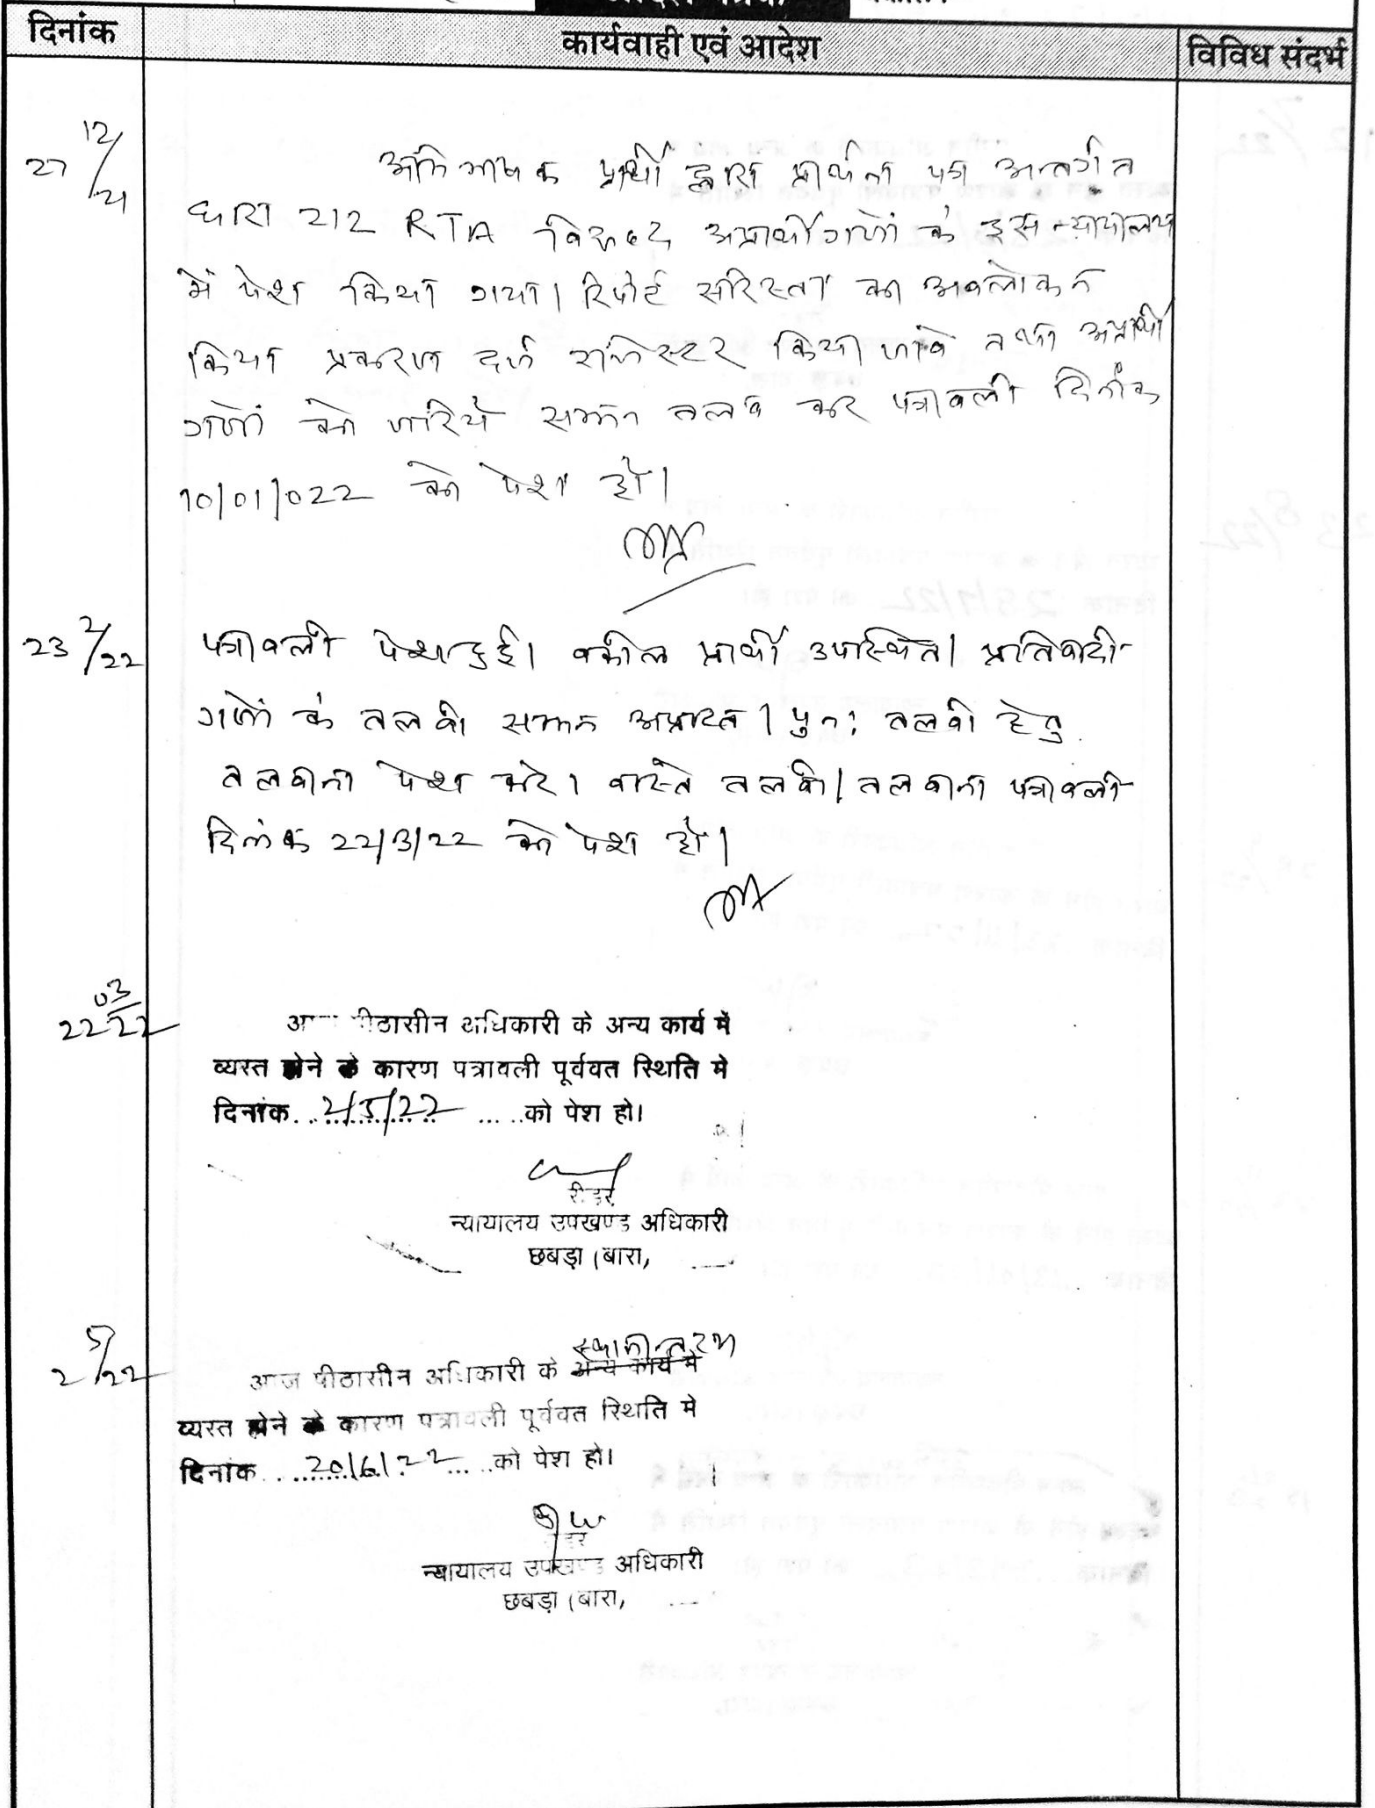 दिनांक कार्यवाही एवं आदेश विविध संदर्भ
27 12/21 अभिभाषक प्रार्थी द्वारा प्रार्थना पत्र अन्तर्गत
धारा 212 RTA विरूद्ध अप्रार्थीगणों के इस न्यायालय
में पेश किया गया। रिपोर्ट सरिस्ता का अवलोकन
किया प्रकरण दर्ज रजिस्टर किया जावे तथा अप्रार्थी
गणों को जरिये सम्मन तलब कर पत्रावली दिनांक
10/01/022 को पेश हो।
23 2/22 पत्रावली पेश हुई। वकील प्रार्थी उपस्थित। प्रतिवादी
गणों के तलबी सम्मन अप्राप्त। पुनः तलबी हेतु
तलबाना पेश करे। वास्ते तलबी/तलबाना पत्रावली
दिनांक 22/3/22 को पेश हो।
22 03/22 पीठासीन अधिकारी के अन्य कार्य में
व्यस्त होने के कारण पत्रावली पूर्ववत स्थिति मे
दिनांक..2/5/22.....को पेश हो।
रीडर
न्यायालय उपखण्ड अधिकारी
छबड़ा (बारा,
स्थानान्तरण
2 5/22 आज पीठासीन अधिकारी के अन्य कार्य मे
व्यस्त होने के कारण पत्रावली पूर्ववत स्थिति मे
दिनांक...20/6/22.....को पेश हो।
न्यायालय उपखण्ड अधिकारी
छबड़ा (बारा,